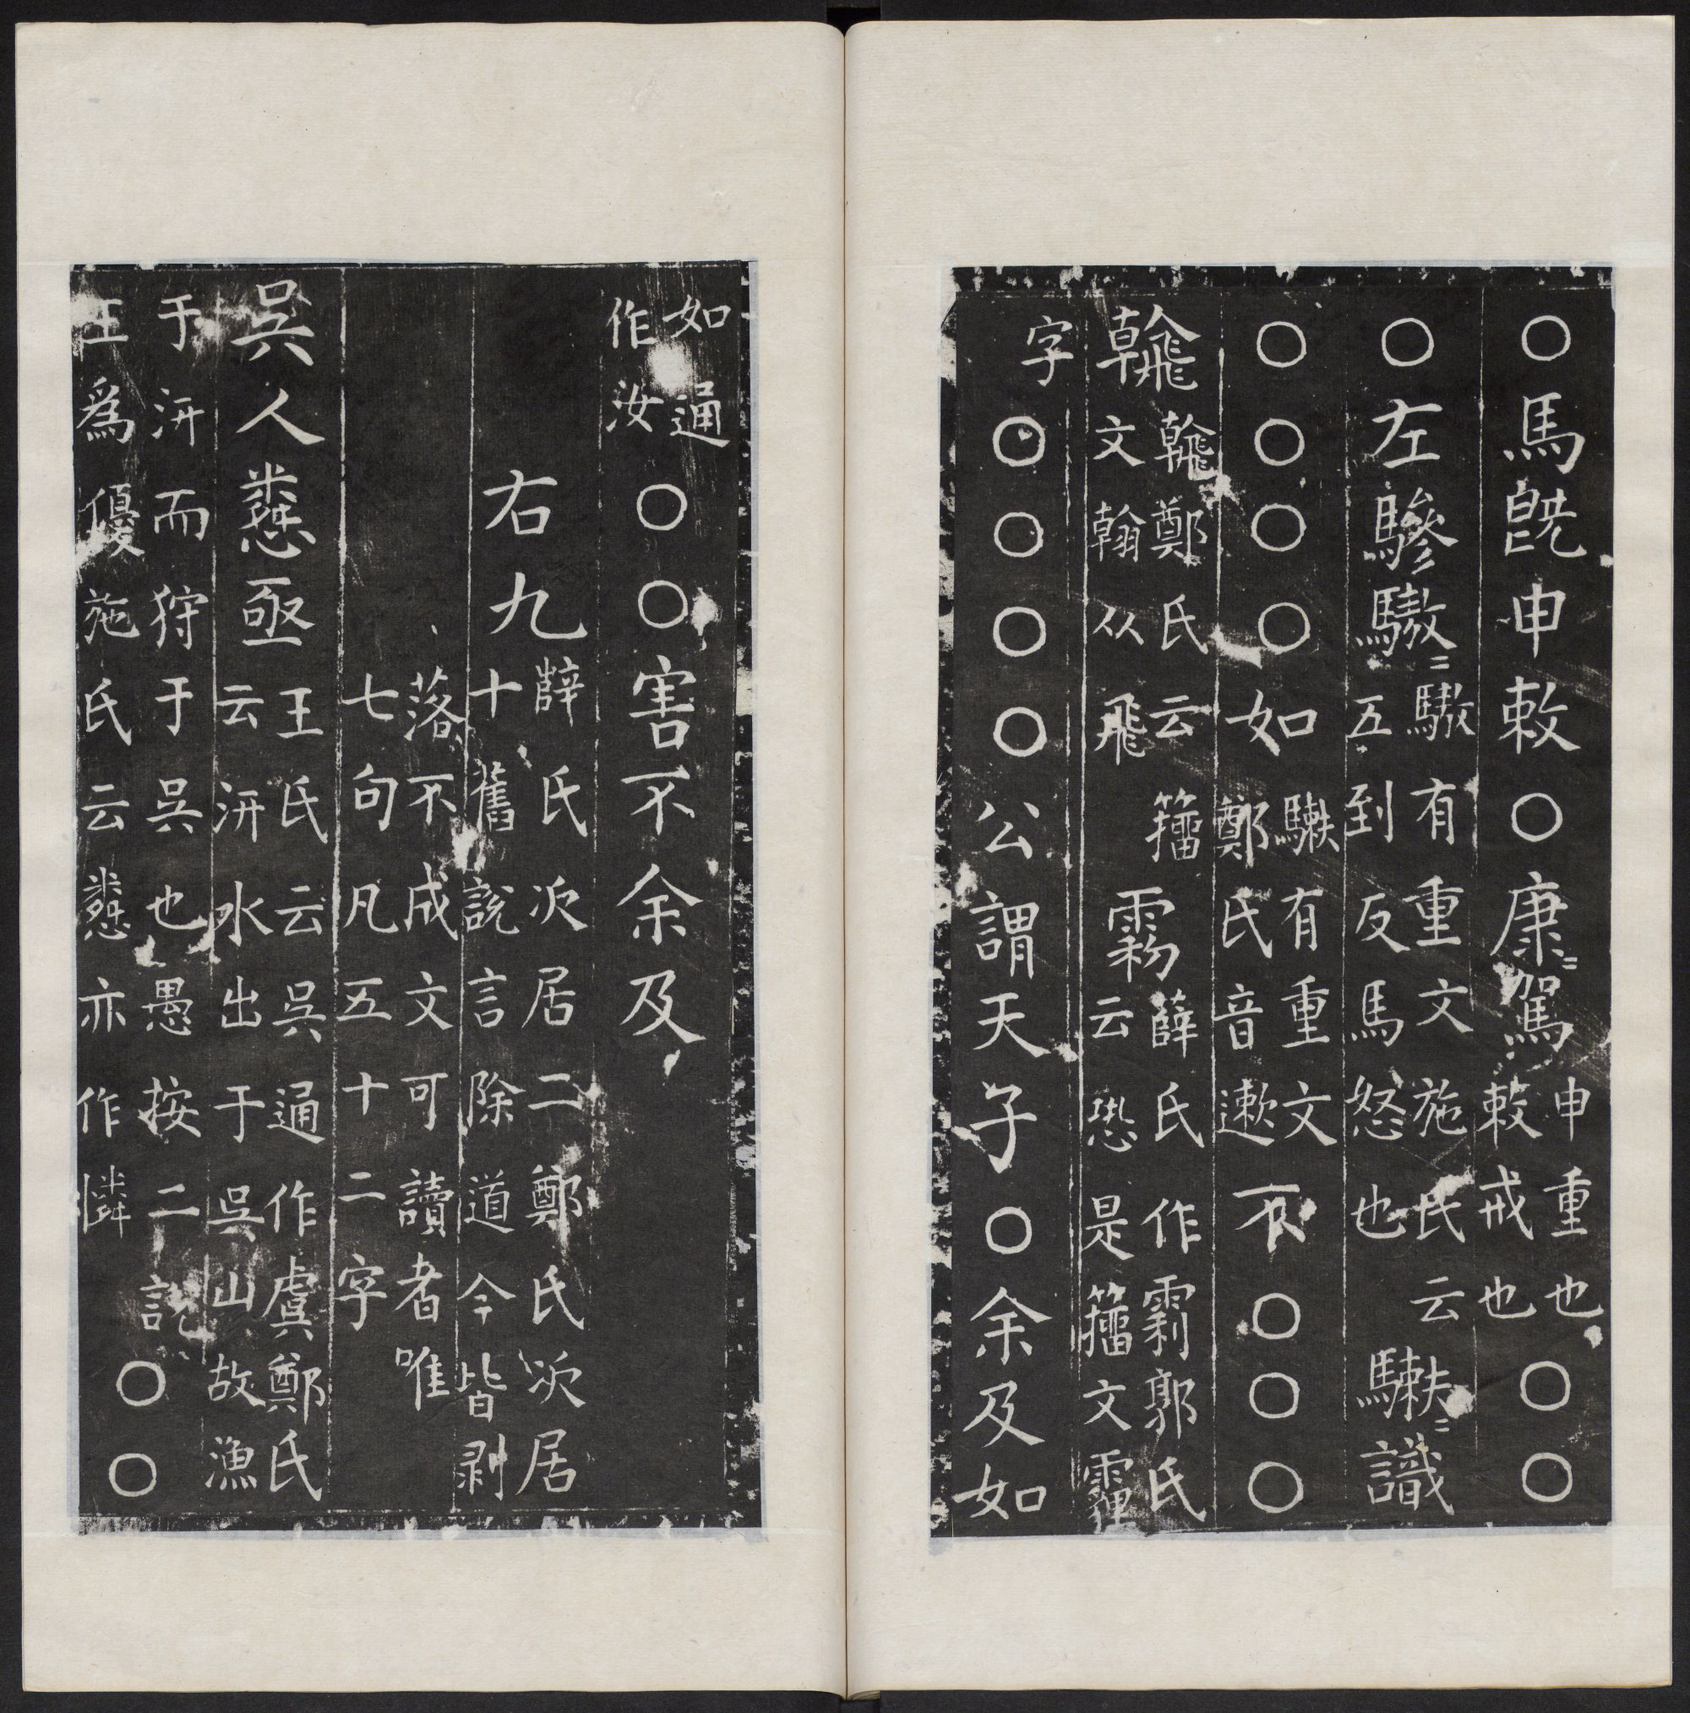 ○馬旣申敕○康〻駕申重也敕戒也○○
○左驂驐〻驐有重文施氏云五到反馬怒也𩥭〻識
○○○○如𩥭有重文鄭氏音漱不○○○
鶾鄭氏云籒文翰从飛霧薛氏作霧郭氏云恐是籒文霾
字○○○○公謂天子○余及如
如通作汝○○害不余及
右九薛氏次居二鄭氏次居十舊說言除道今皆剥
落不成文可讀者唯七句凡五十二字
吳人憐亟王氏云吳通作虞鄭氏云汧水出于吳山故漁
于汧而狩于吳也愚按二說王爲優施氏云憐亦作憐○○